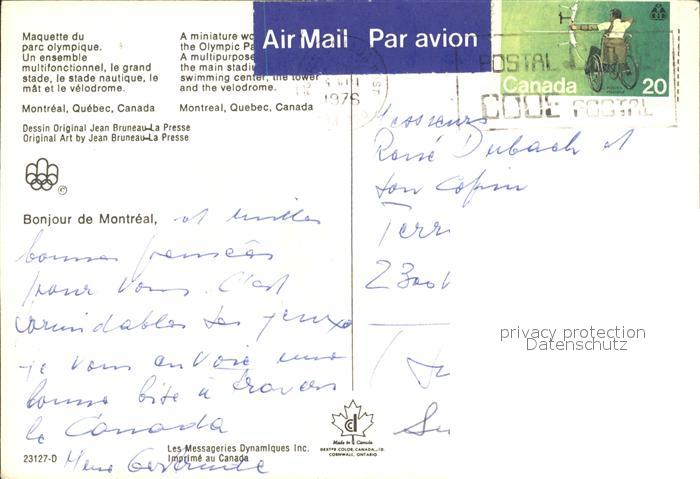 Maquette du
parc olympique.
Un ensemble
multifonctionnel, le grand
stade, le stade nautique, le
mât et le vélodrome.
Montréal, Québec, Canada
A miniature wo
the Olympic Pa
A multipurpose
the main stadiu
swimming center, the tower
and the velodrome.
Montreal, Quebec, Canada
Dessin Original Jean Bruneau-La Presse
Original Art by Jean Bruneau-La Presse
©
Air Mail Par avion
1976
POSTAL
CODE POSTAL
Canada 20
Bonjour de Montréal, et milles
bonnes pensées
pour vous. C'est
les jeux
je vous envoie une
bonne bise à travers
le Canada
Gertrude
Messieurs
René Dubach et
son Copin
Terr
2300
Su
privacy protection
Datenschutz
Made in Canada
DEXTER COLOR, CANADA
CORNWALL, ONTARIO
Les Messageries Dynamiques Inc.
23127-D Imprimé au Canada